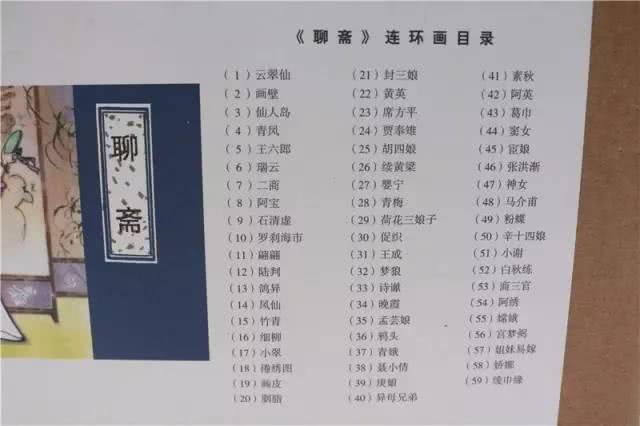 《聊斋》连环画目录
聊斋
（1）云翠仙
（2）画壁
（3）仙人岛
（4）青凤
（5）王六郎
（6）瑞云
（7）二商
（8）阿宝
（9）石清虚
（10）罗刹海市
（11）翩翩
（12）陆判
（13）鸽异
（14）凤仙
（15）竹青
（16）细柳
（17）小翠
（18）绣图
（19）画皮
（20）胭脂
（21）封三娘
（22）黄英
（23）席方平
（24）贾奉雉
（25）胡四娘
（26）续黄梁
（27）婴宁
（28）青梅
（29）荷花三娘子
（30）促织
（31）王成
（32）梦狼
（33）诗谳
（34）晚霞
（35）孟芸娘
（36）鸦头
（37）青娥
（38）聂小倩
（39）庚娘
（40）异母兄弟
（41）素秋
（42）阿英
（43）葛巾
（44）窦女
（45）宦娘
（46）张洪渐
（47）神女
（48）马介甫
（49）粉蝶
（50）辛十四娘
（51）小谢
（52）白秋练
（53）商三官
（54）阿绣
（55）嫦娥
（56）宫梦弼
（57）姐妹易嫁
（58）娇娜
（59）绫巾缘